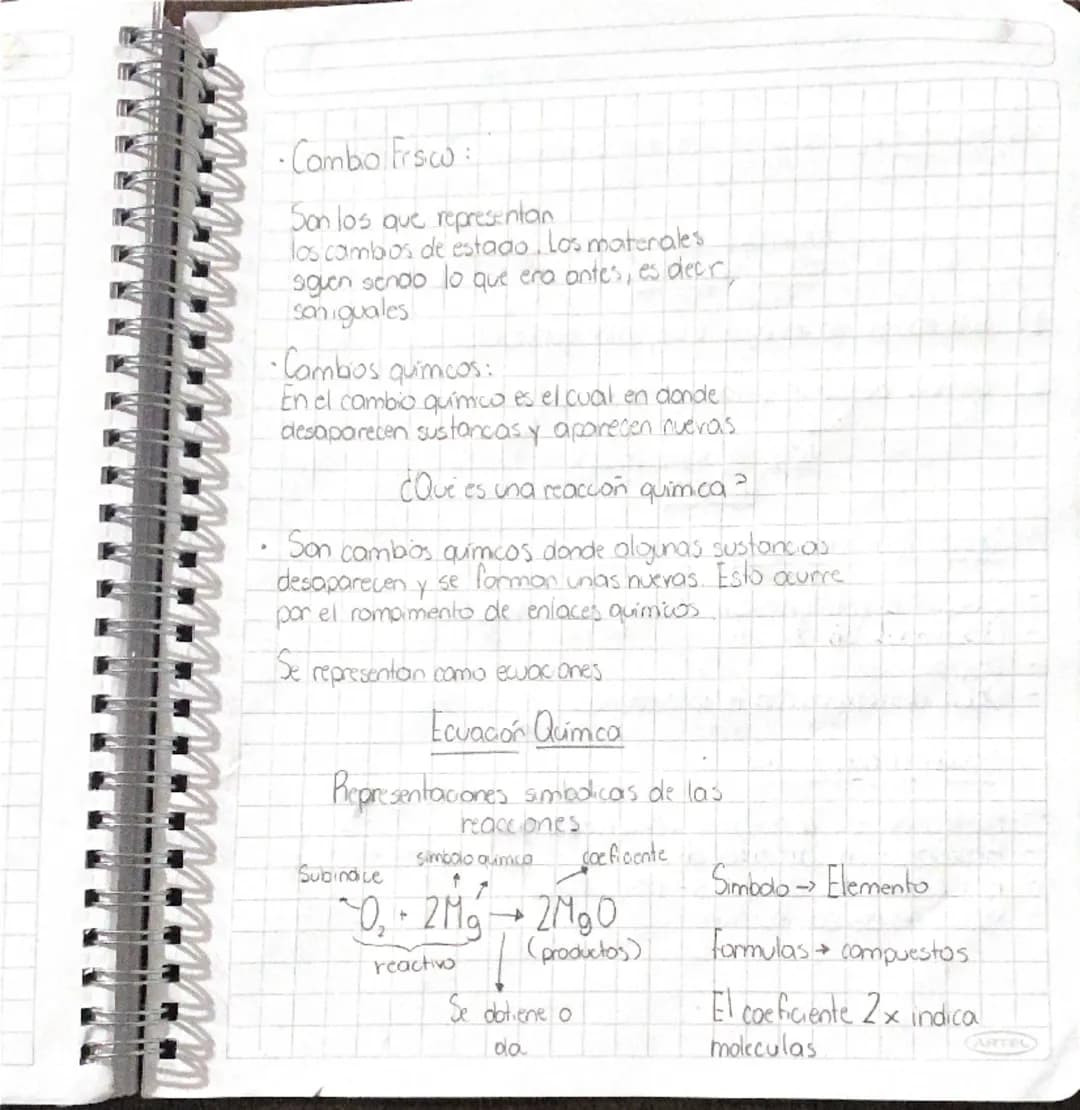 · Cambio Físico:
Son los que representan
los cambios de estado. Los materiales
siguen siendo lo que era antes, es decir,
son iguales
· Cambios químicos:
En el cambio químico es el cual en donde
desaparecen sustancias y aparecen nuevas
¿Qué es una reacción química?
· Son cambios químicos donde algunas sustancias
desaparecen y se forman unas nuevas. Esto ocurre
por el rompimiento de enlaces químicos
Se representan como ecuaciones
Ecuación Química
Representaciones simbolicas de las
reacciones
simbolo quimico coeficiente
Subindice
O₂ + 2Mg → 2MgO
reactivo (productos)
Se obtiene o
da
Simbolo → Elemento
formulas → compuestos
El coeficiente 2x indica
moleculas
ARTEL